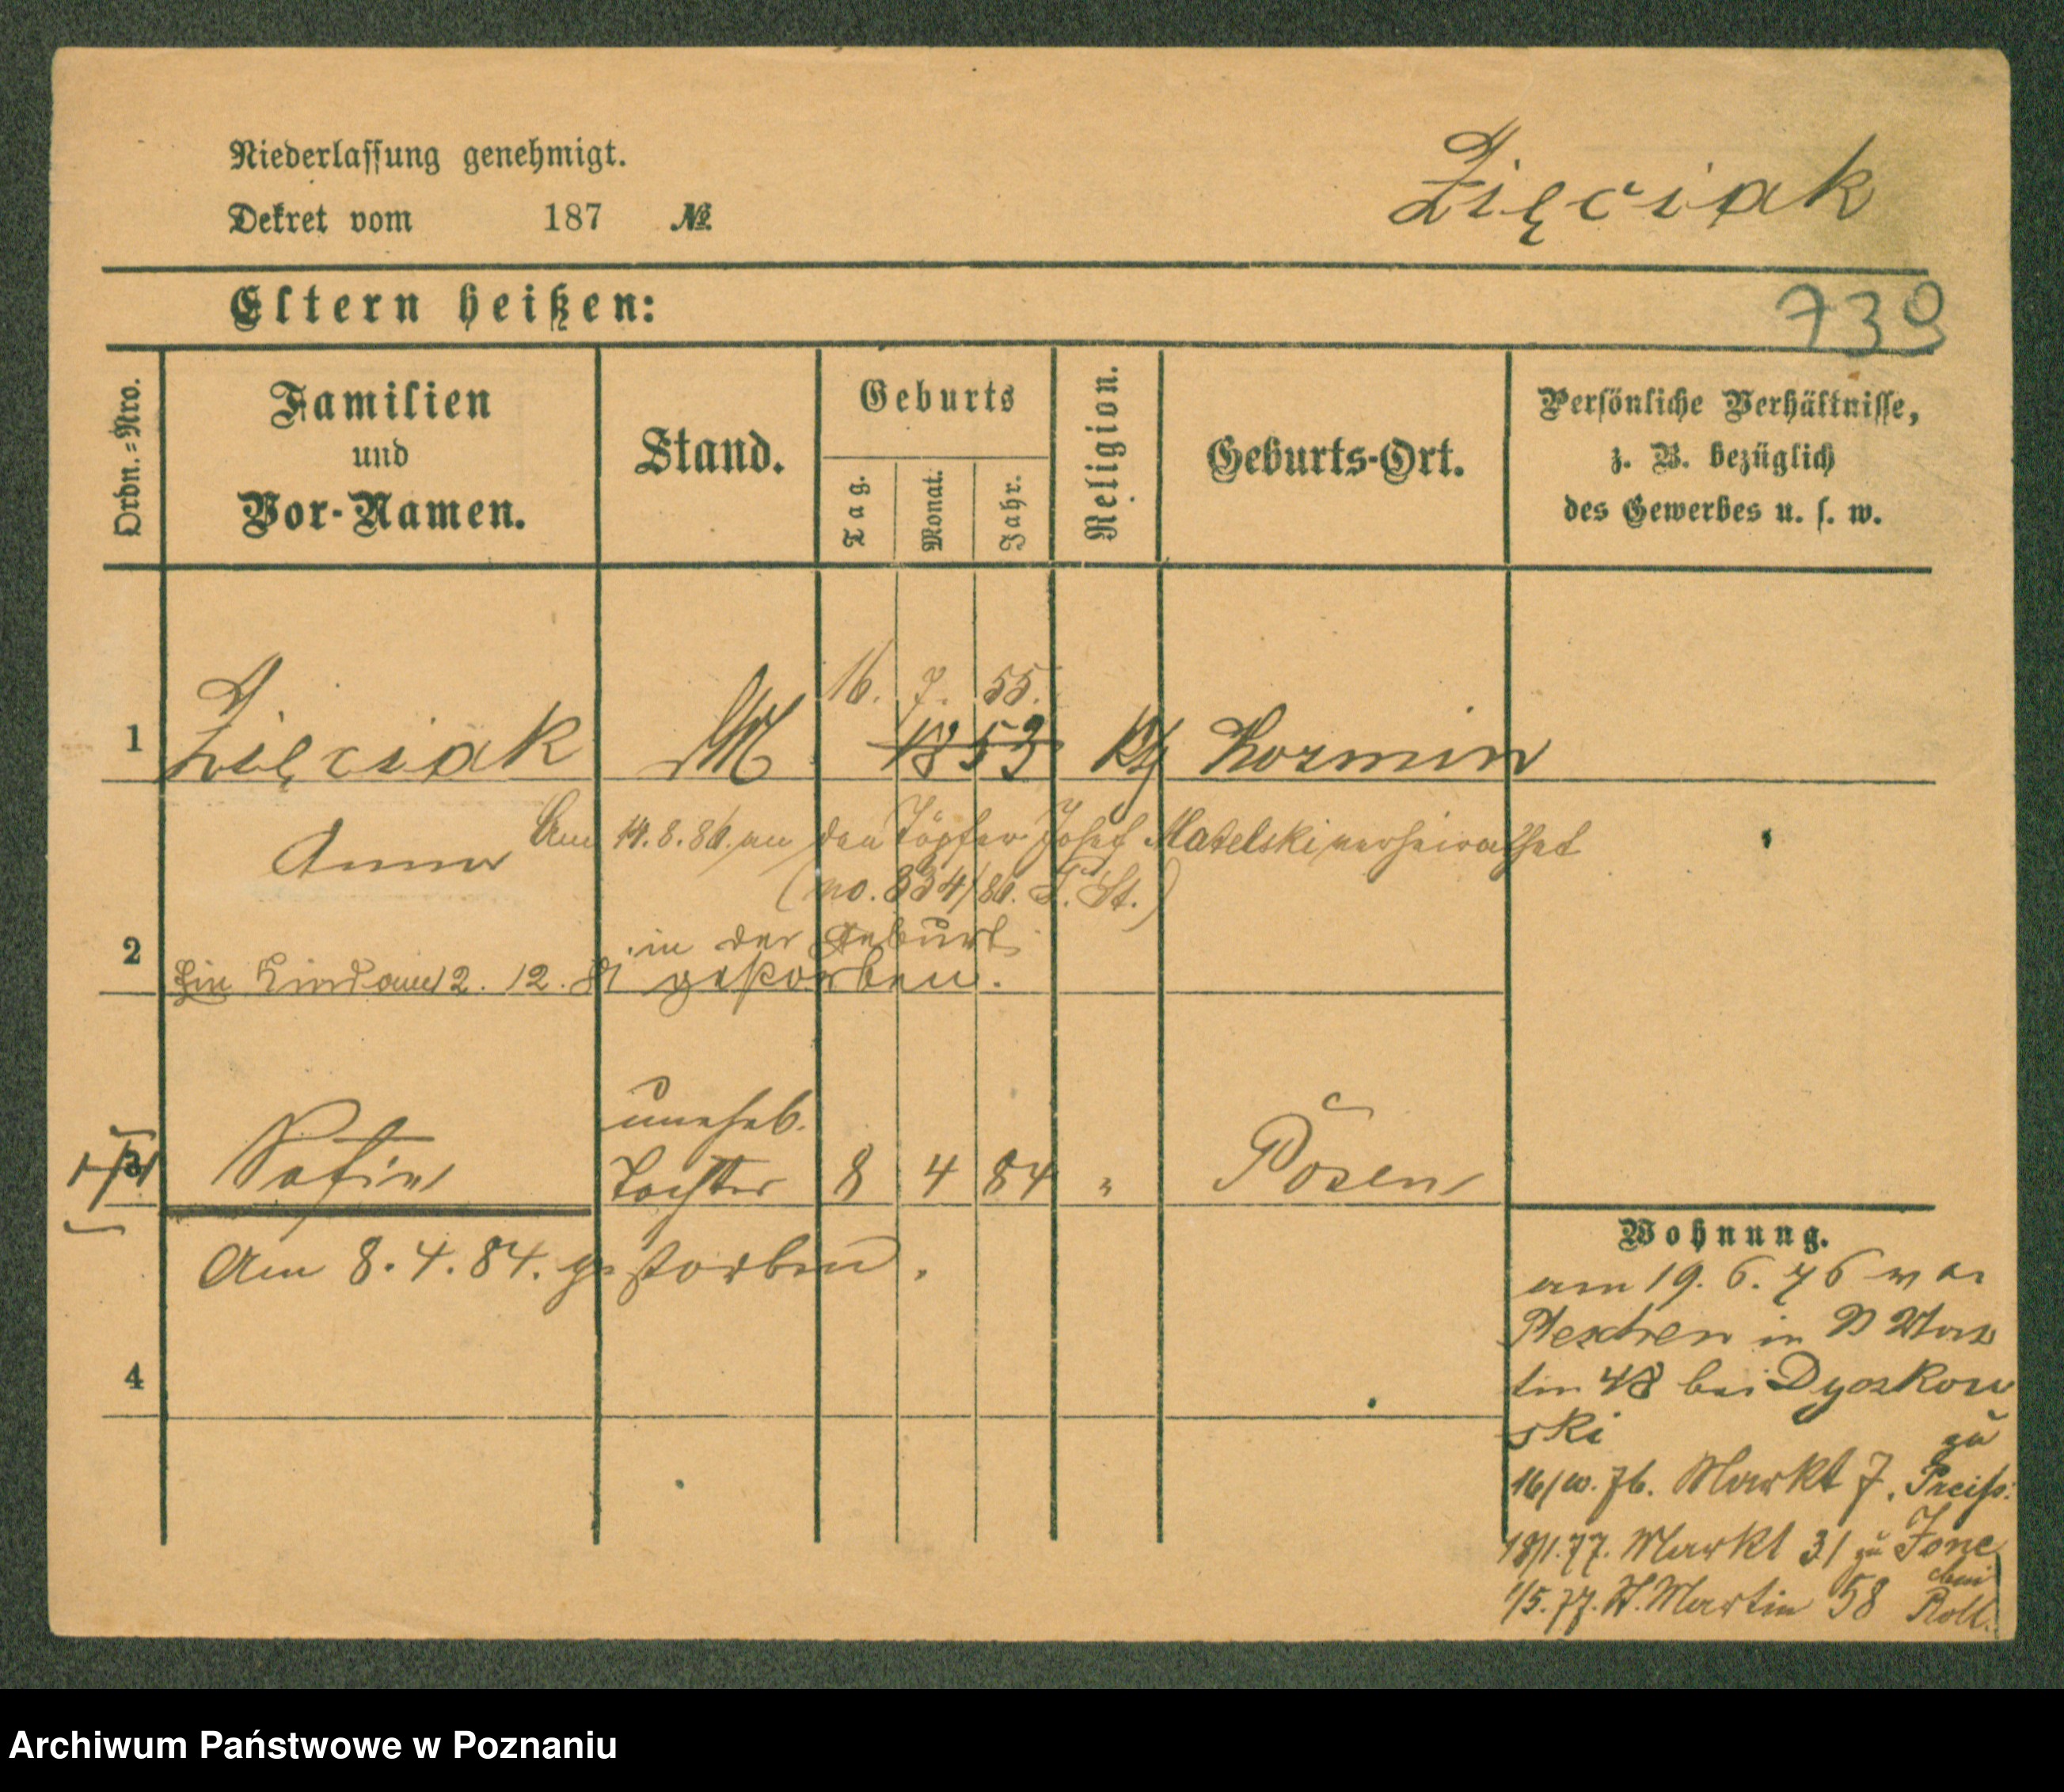 Niederlassung genehmigt.
Dekret vom 187 №
Zięciak
Eltern heißen:
739
Ordn.-Nro.
Familien
und
Vor-Namen.
Stand.
Geburts
Tag.
Monat.
Jahr.
Religion.
Geburts-Ort.
Persönliche Verhältnisse,
z. B. bezüglich
des Gewerbes u. s. w.
16. 7. 55.
1 Zięciak M 1853 Kth Kozmin
Anna Am 14.8.86. an den Töpfer Josef Matelski verheirathet
(no. 834/86. T. St.)
2
in der Geburt
Ein Kind am 2. 12. 81 gestorben.
unehel.
3 Sofia Tochter 8 4 84 " Posen
Am 8. 4. 84. gestorben.
4
Wohnung.
am 19. 6. 76 von
Pleschen in St Mar
tin 48 bei Dyszkow
ski
16/10. 76. Markt 7. zu Preiss.
18/1. 77. Markt 31 zu
1/5. 77. St. Martin 58
Archiwum Państwowe w Poznaniu